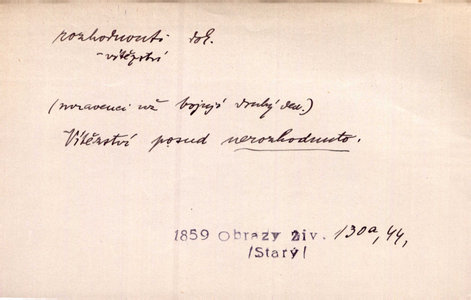 rozhodnouti dok.
- vítězství
(mravenci už bojují druhý den.)
Vítězství posud nerozhodnuto.
1859 Obrazy živ. 130a, 44,
/Starý/